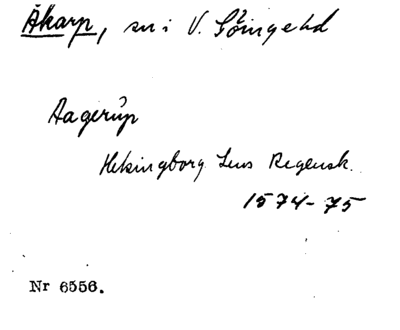 Åkarp, sn i V. Göingehd
Aagerup
Helsingborg Lens Regensk.
1574-75
Nr 6556.